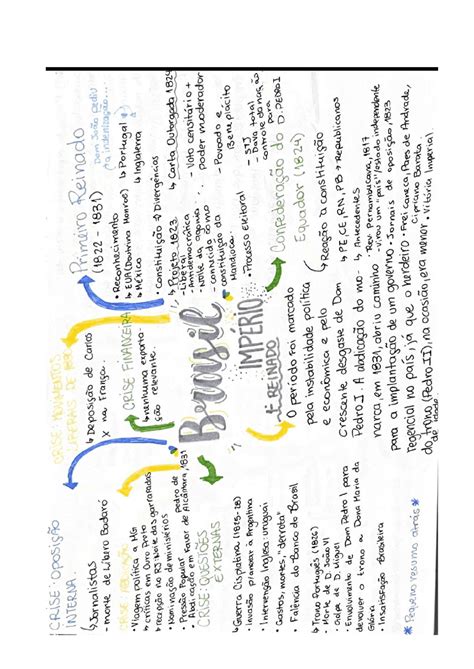 CRISE: OPOSIÇÃO
INTERNA
↳ Jornalistas
- morte de Líbero Badaró
• Viagem política a MG
↳ críticas em Ouro Preto
• recepção no RJ: Noite das garrafadas
• Nominação de ministérios
• Pressão Popular
• Abdicação em favor de Pedro de Alcântara, 1831
CRISE: QUESTÕES
EXTERNAS
↳ Guerra Cisplatina (1825-28)
• Invasão
• Intervenção Inglesa: Uruguai
• Gastos, mortes, "derrota"
• Falência do Banco do Brasil
↳ Trono Português (1826)
- Morte de D. João VI
- Golpe de D. Miguel
- Envolvimento de Dom Pedro I para
devolver o trono a Dona Maria da
Glória
• Insatisfação Brasileira
* Pequeno resumo atrás *
↳ Deposição de Carlos
X na França.
CRISE FINANCEIRA
↳ nenhuma exporta-
ção relevante.
Brasil
IMPÉRIO
1º REINADO
O período foi marcado
pela instabilidade política
e econômica e pelo
crescente desgaste de Dom
Pedro I. A abdicação do mo-
narca, em 1831, abriu caminho
para a implantação de um governo
regencial no país, já que o herdeiro
do trono (Pedro II), na ocasião, era menor
de idade
Primeiro Reinado
(1822 - 1831)
Dom João pediu
• Reconhecimento
↳ EUA (Doutrina Monroe)
↳ México
↳ Portugal
↳ Inglaterra
• Constituição
Divergências
↳ Projeto 1823
- Liberal
- Antidemocrática
- Noite da agonia
- conhecida como
constituição da
Mandioca
↳ Carta Outorgada 1824
- Voto censitário +
poder moderador
- Padroado e
Beneplácito
• Processo eleitoral
Dava total
controle da nação
a D. PEDRO I
Confederação do
Equador (1824)
↳ Reação à constituição
↳ PE, CE, RN, PB → Republicanos
↳ Antecedentes
• Rev. Pernambucana, 1817
- virou um "país"/estado independente
• Jornais de oposição, 1823
• Frei Caneca, Paes de Andrade,
Cipriano Barata
• Vitória Imperial